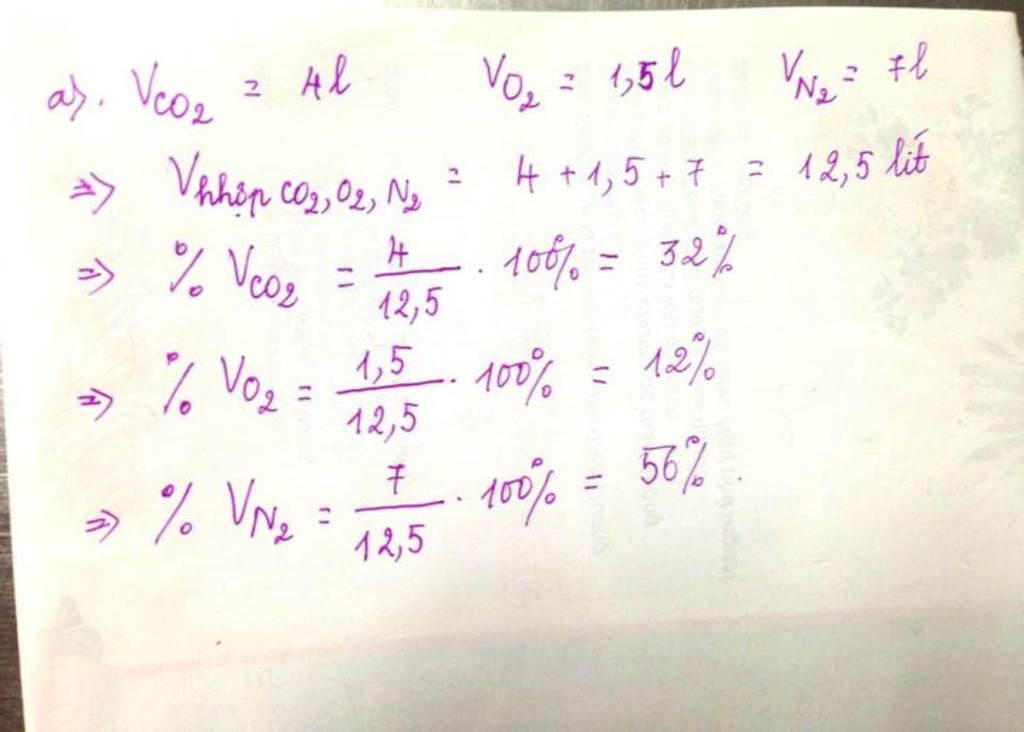 a). V_CO2 = 4l V_O2 = 1,5l V_N2 = 7l
=> V_hhợp CO2, O2, N2 = 4 + 1,5 + 7 = 12,5 lít
=> % V_CO2 = 4/12,5 . 100% = 32%
=> % V_O2 = 1,5/12,5 . 100% = 12%
=> % V_N2 = 7/12,5 . 100% = 56% .